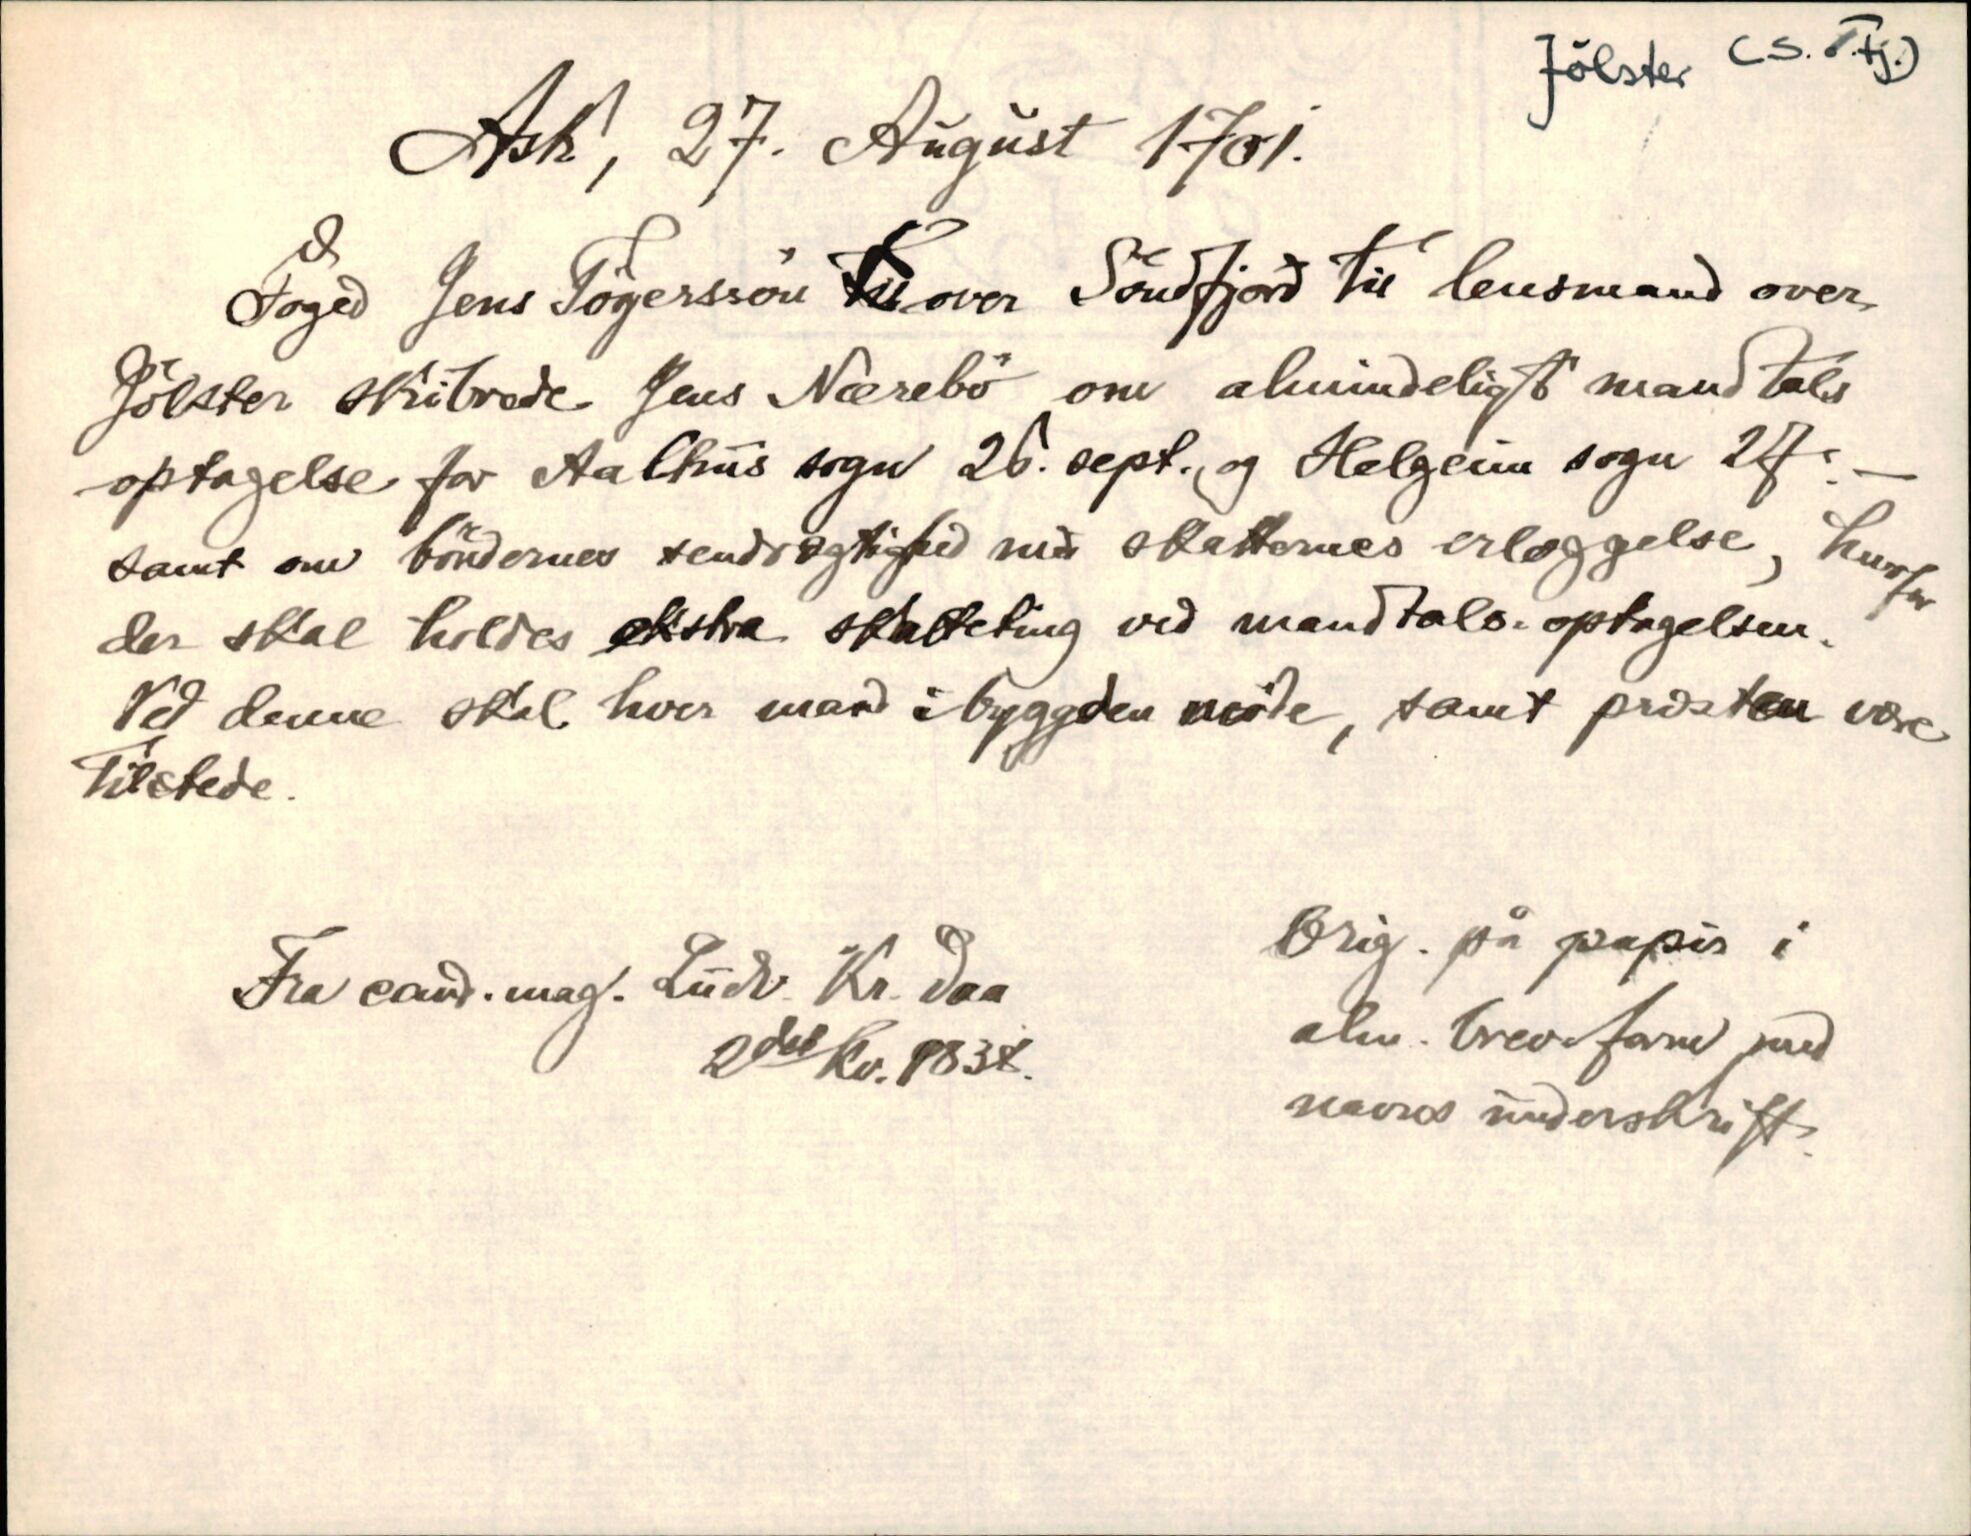 Jölster (S. & Fj.)
Ask, 27. August 1701.
Foged Jens Tögerssön over Söndfjord til lensmand over
Jölster skibrede Jens Nærebö om almindeligt mandtals
optagelse for Aalhus sogn 26. sept. og Helgeim sogn 27. —
samt om böndernes sendrægtighed med skatternes erlæggelse, hvorfor
der skal holdes ekstra skatteting ved mandtals-optagelsen.
Ved denne skal hver mand i byggden möde, samt præsten være
tilstede.
Fra cand. mag. Ludv. Kr. Daa
2det Kv. 1838.
Orig. på papir i
alm. brev-form med
navns underskrift.